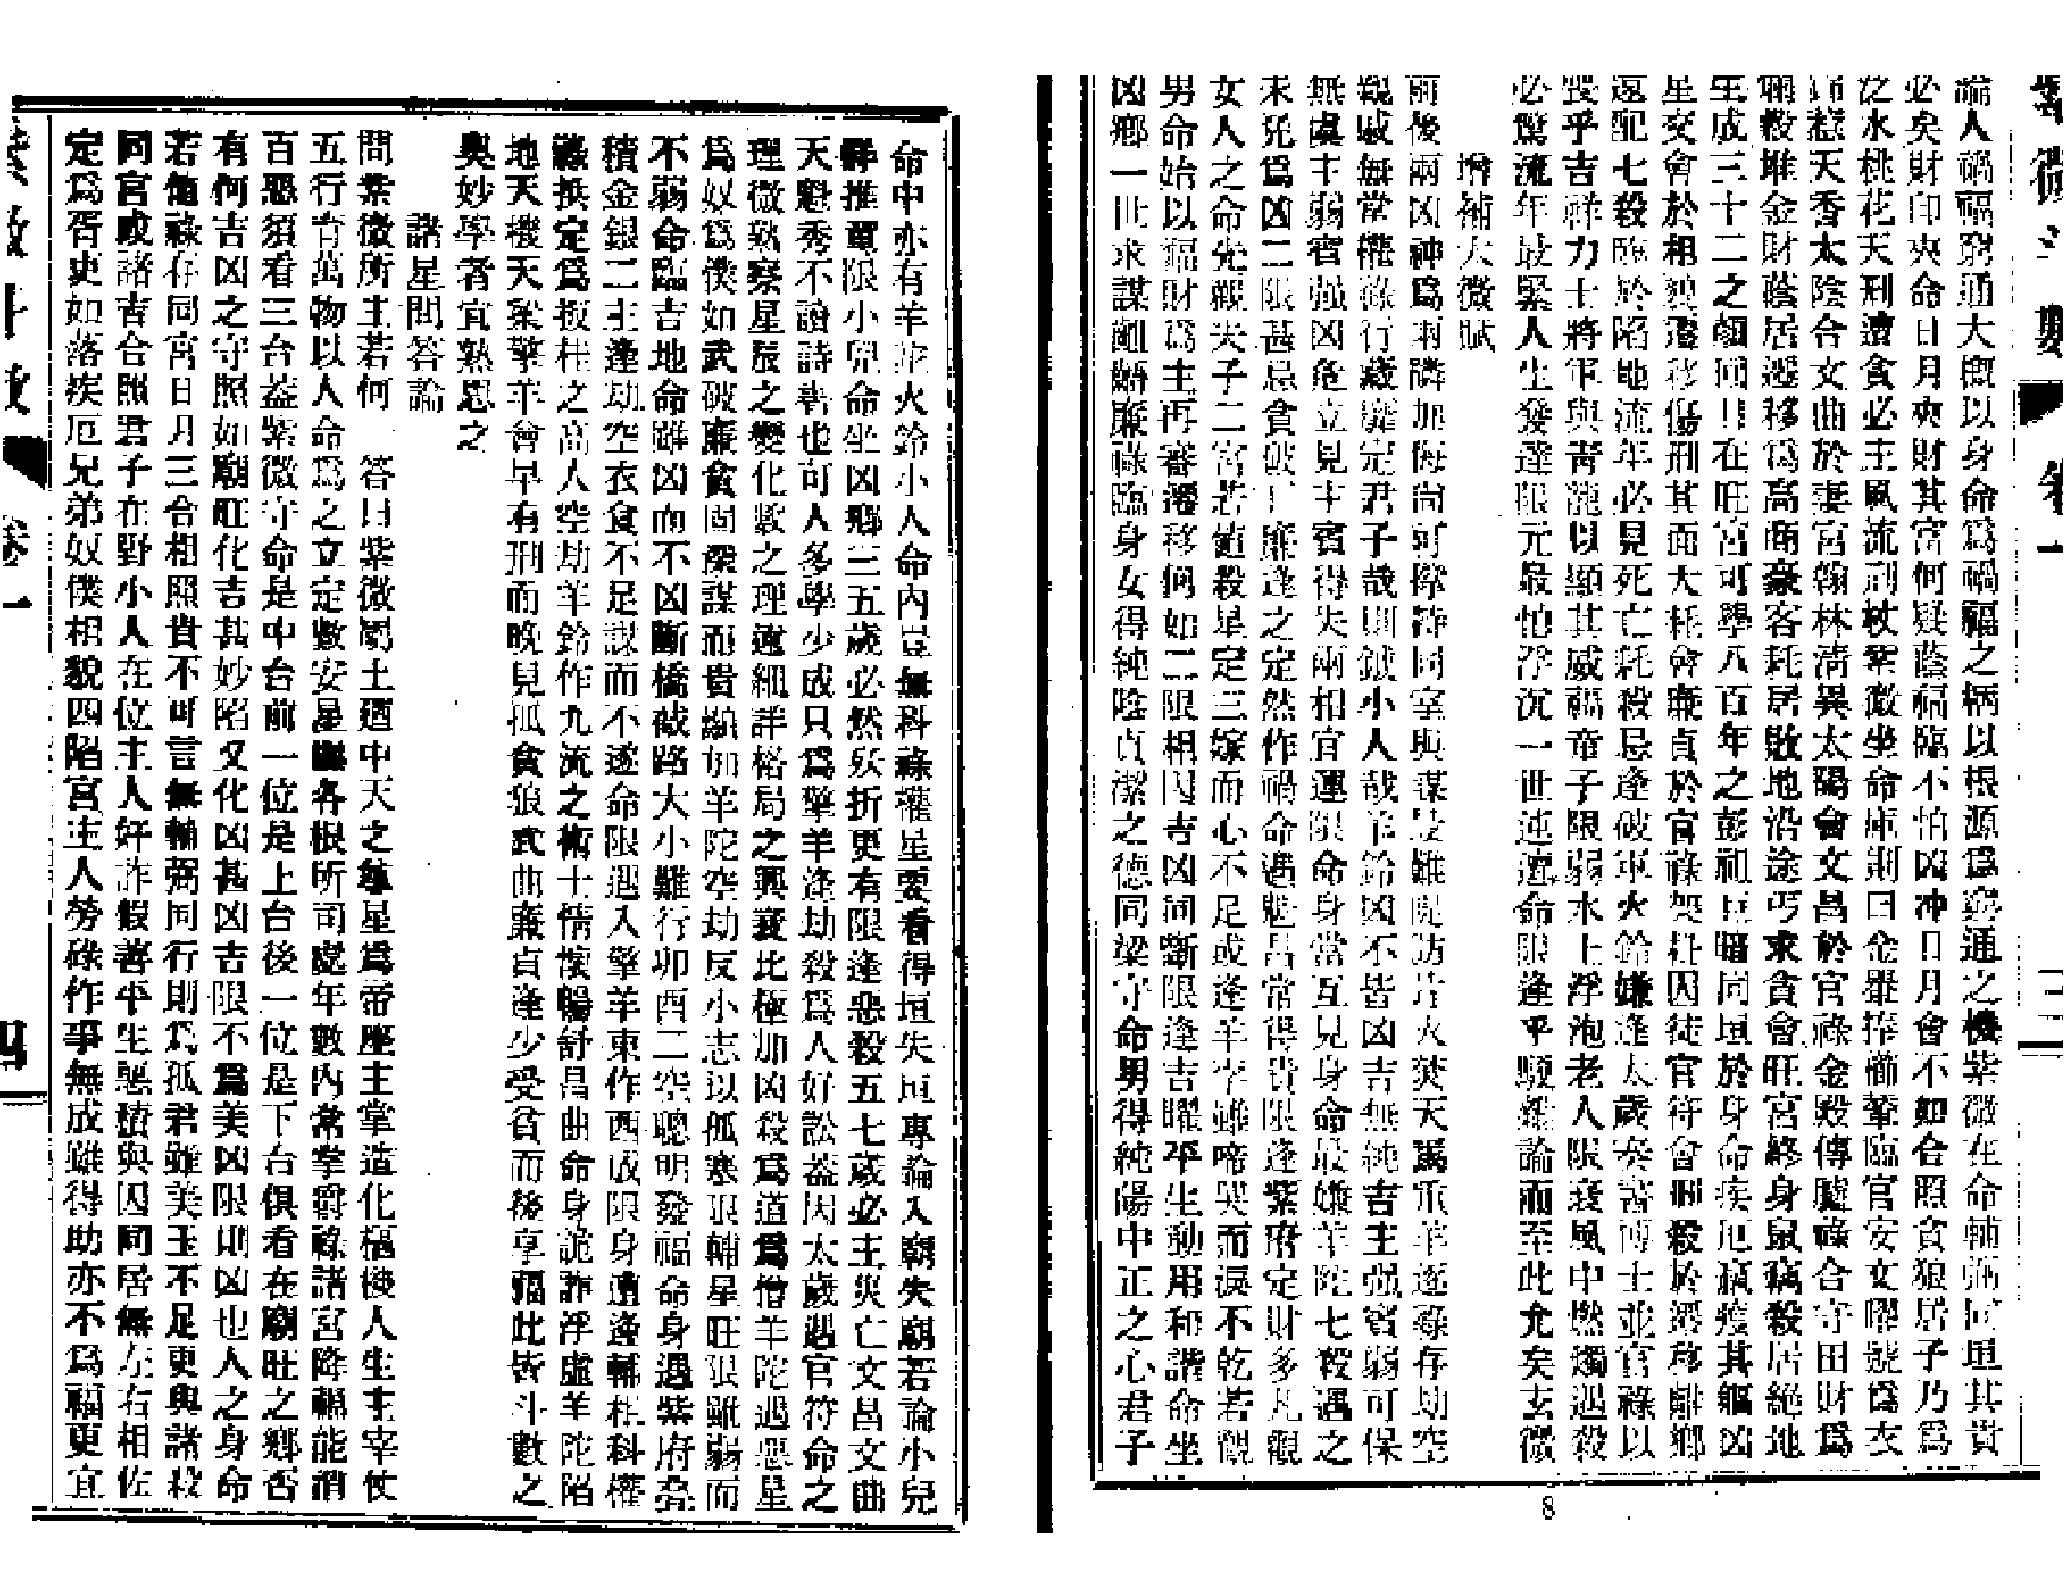 紫微斗數 卷一 三
論人禍福窮通大概以身命爲禍福之柄以根源爲窮通之機紫微在命輔弼同垣其貴
必矣財印夾命日月夾財其富何疑蔭福臨不怕凶沖日月會不如合照貪狼居子乃爲
泛水桃花天刑遭貪必主風流刑杖紫微坐命庫則曰金轝捧櫛輦臨官安文曜號爲衣
錦惹天香太陰合文曲於妻宮翰林淸異太陽會文昌於官祿金殿傳臚祿合守田財爲
爛穀堆金財蔭居遷移爲高商豪客耗居敗地沿途丐求貪會旺宮終身鼠竊殺居絕地
生成三十二之顏回日在旺宮可學八百年之彭祖巨暗同垣於身命疾厄羸瘦其軀凶
星交會於相貌遷移傷刑其面大耗會廉貞於官祿架杻囚徒官符會刑殺於遷移離鄕
遠配七殺臨於陷地流年必見死亡耗殺忌逢破軍火鈴嫌逢太歲奏書博士並官祿以
喪乎吉祥力士將軍與靑龍以顯其威福童子限弱水上浮泡老人限衰風中燃燭遇殺
必驚流年最緊人生發達限元最怕浮沉一世迍邅命限逢乎駁雜論而至此允矣玄微
增補太微賦
前後兩凶神爲兩鄰加侮尚可撐持同室與謀最難隄防片火焚天馬重羊逐祿存劫空
親戚無常權祿行藏靡定君子哉魁鉞小人哉羊鈴凶不皆凶吉無純吉主强賓弱可保
無虞主弱賓强凶危立見主賓得失兩相宜運限命身當互見身命最嫌羊陀七殺遇之
未免爲凶二限甚忌貪破巨廉逢之定然作禍命遇魁昌常得貴限逢紫府定財多凡觀
女人之命先觀夫子二宮若値殺星定三嫁而心不足或逢羊孛雖啼哭而淚不乾若觀
男命始以福財爲主再審遷移何如二限相因吉凶同斷限逢吉曜平生動用和諧命坐
凶鄕一世求謀齟齬廉祿臨身女得純陰貞潔之德同梁守命男得純陽中正之心君子
8
命中亦有羊陀火鈴小人命內豈無科祿權星要看得垣失垣專論入廟失廟若論小兒
詳推童限小兒命坐凶鄕三五歲必然夭折更有限逢惡殺五七歲必主災亡文昌文曲
天魁秀不讀詩書也可人多學少成只爲擎羊逢劫殺爲人好訟蓋因太歲遇官符命之
理微熟察星辰之變化數之理遠細詳格局之興衰北極加凶殺爲道爲僧羊陀遇惡星
爲奴爲僕如武破廉貪固深謀而貴顯加羊陀空劫反小志以孤寒限輔星旺限雖弱而
不弱命臨吉地命雖凶而不凶斷橋截路大小難行卯酉二空聰明發福命身遇紫府疊
積金銀二主逢劫空衣食不足謀而不遂命限遇入擎羊東作西成限身遭逢輔相科權
祿拱定爲扳桂之高人空劫羊鈴作九流之術士情懷暢舒昌曲命身詭詐浮虛羊陀陷
地天機天梁擎羊會早有刑而晚見孤貪狼武曲廉貞逢少受貧而後享福此皆斗數之
奧妙學者宜熟思之
諸星問答論
問紫微所主若何 答曰紫微屬土廼中天之尊星爲帝座主掌造化樞機人生主宰仗
五行育萬物以人命爲之立定數安星躔各根所司處年數內常掌爵祿諸宮降福能消
百惡須看三台蓋紫微守命是中台前一位是上台後一位是下台俱看在廟旺之鄕否
有何吉凶之守照如廟旺化吉甚妙陷又化凶甚凶吉限不爲美凶限則凶也人之身命
若値祿存同宮日月三合相照貴不可言無輔弼同行則爲孤君雖美玉不足更與諸殺
同宮或諸吉合照君子在野小人在位主人奸詐假善平生惡積與囚同居無左右相佐
定爲胥吏如落疾厄兄弟奴僕相貌四陷宮主人勞碌作事無成雖得助亦不爲福更宜
紫微斗數 卷一 四